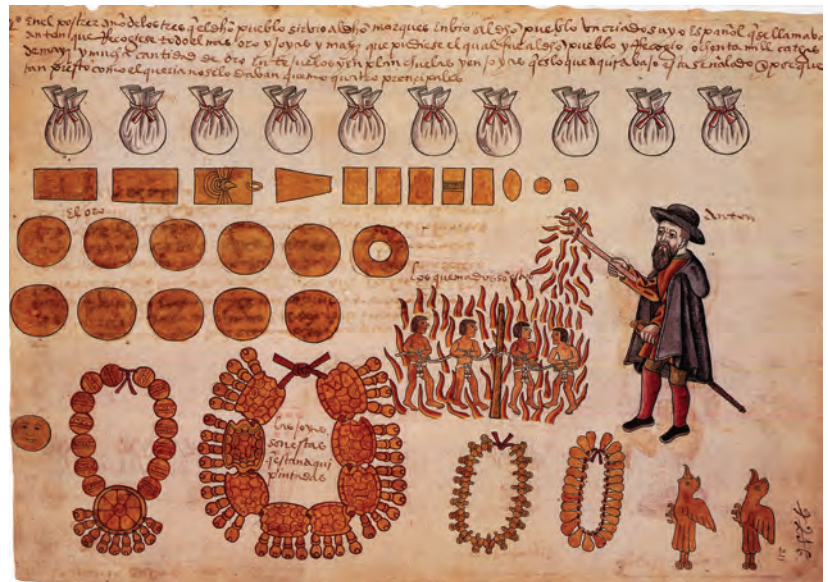 Enel postrer año delos tres q̃ el dho pueblo sirvio al dho marques Enbio al dho pueblo Un criado suyo Español q̃ se llamaba
anton que Recogiese todo el mas oro y joyas y mayz que pudiese el qual fue al dho pueblo y Recogio ochenta mill cargas
de mayz y mucha cantidad de oro En tejuelos y en planchuelas y en joyas q̃ es lo que aqui abajo esta señalado porque
tan presto como el queria no se lo daban quemo quatro prencipales
El oro
anton
los quemados son estos
las joyas
son estas
q̃ estan aqui
pintadas